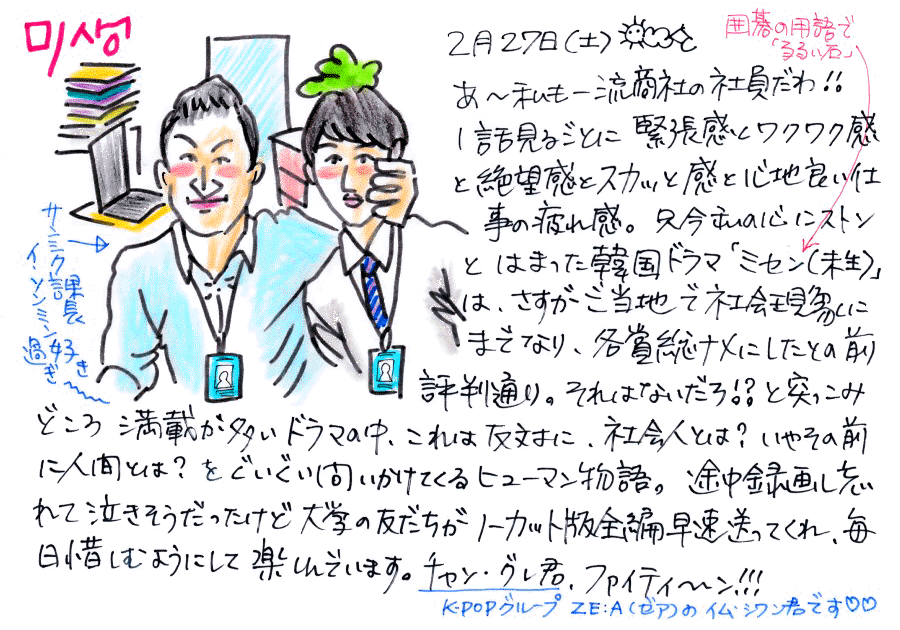 미생
2月27日(土)
囲碁の用語で
「ゆるい石」
あ～私も一流商社の社員だわ!!
1話見るごとに緊張感とワクワク感
と絶望感とスカッと感と心地良い仕
事の疲れ感。只今私の心にストン
とはまった韓国ドラマ「ミセン(未生)」
は、さすがご当地で社会現象に
までなり、各賞総ナメにしたとの前
評判通り。それはないだろ!?と突っこみ
どころ満載が多いドラマの中、これは反対に、社会人とは?いやその前
に人間とは?をぐいぐい問いかけてくるヒューマン物語。途中録画し忘
れて泣きそうだったけど大学の友だちがノーカット版全編早速送ってくれ、毎
日惜しむようにして楽しんでいます。チャン・グレ君、ファイティ～ン!!!
K-POPグループ ZE:A(ゼア)のイム・シワン君です♡♡
サンシク課長
イ・ソンミン好き
過ぎ